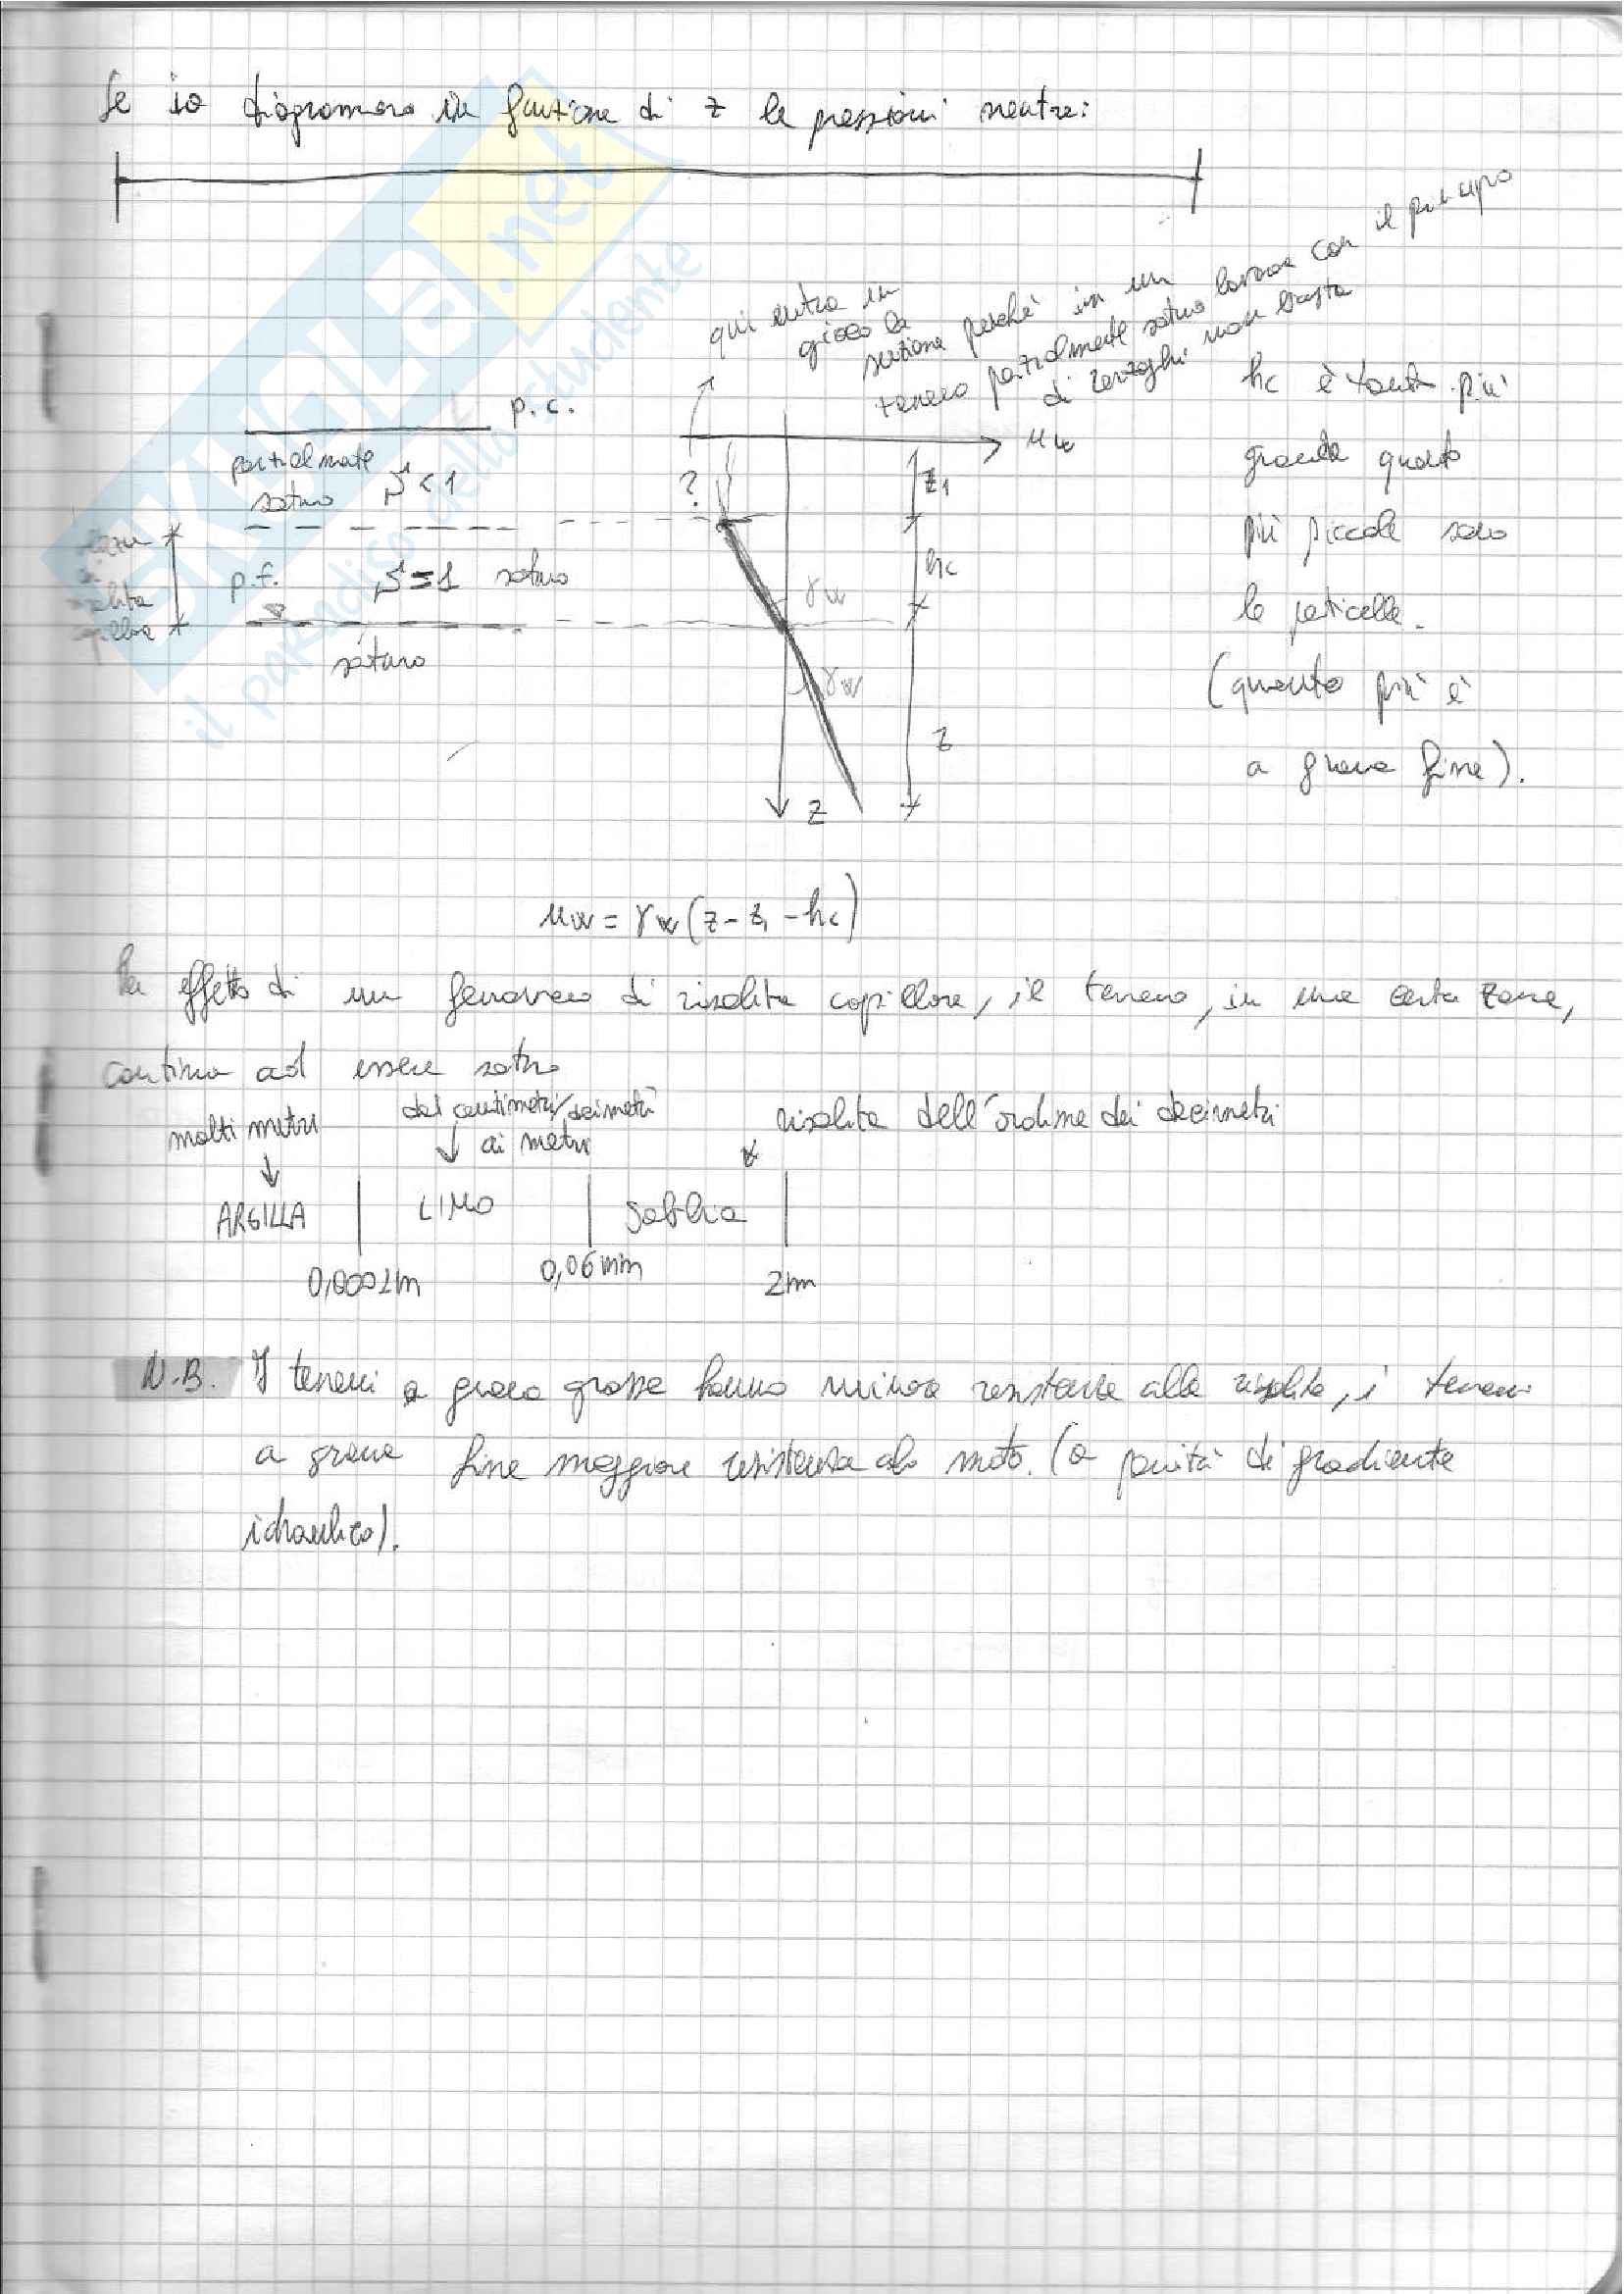 Se io diagrammo in funzione di z le pressioni neutre:
qui entra in
gioco la
suzione perché in un
terreno parzialmente saturo lavorare con il principio
di Terzaghi non basta
p.c.
parzialmente
saturo S<1
?
uw
z1
hc
p.f. S=1 saturo
saturo
γw
γw
z
z
zona
di
risalita
capillare
hc è tanto più
grande quanto
più piccole sono
le particelle.
(quanto più è
a grana fine).
uw = γw (z - z1 - hc)
Per effetto di un fenomeno di risalita capillare, il terreno, in una certa zona,
continua ad essere saturo
molti metri
dai centimetri/decimetri
ai metri
risalita dell'ordine dei decimetri
ARGILLA
LIMO
Sabbia
0,06mm
N.B. I terreni a grana grossa hanno minore resistenza alla risalita, i terreni
a grana fine maggiore resistenza al moto. (a parità di gradiente
idraulico).
SKUOLA.net
il paradiso dello studente